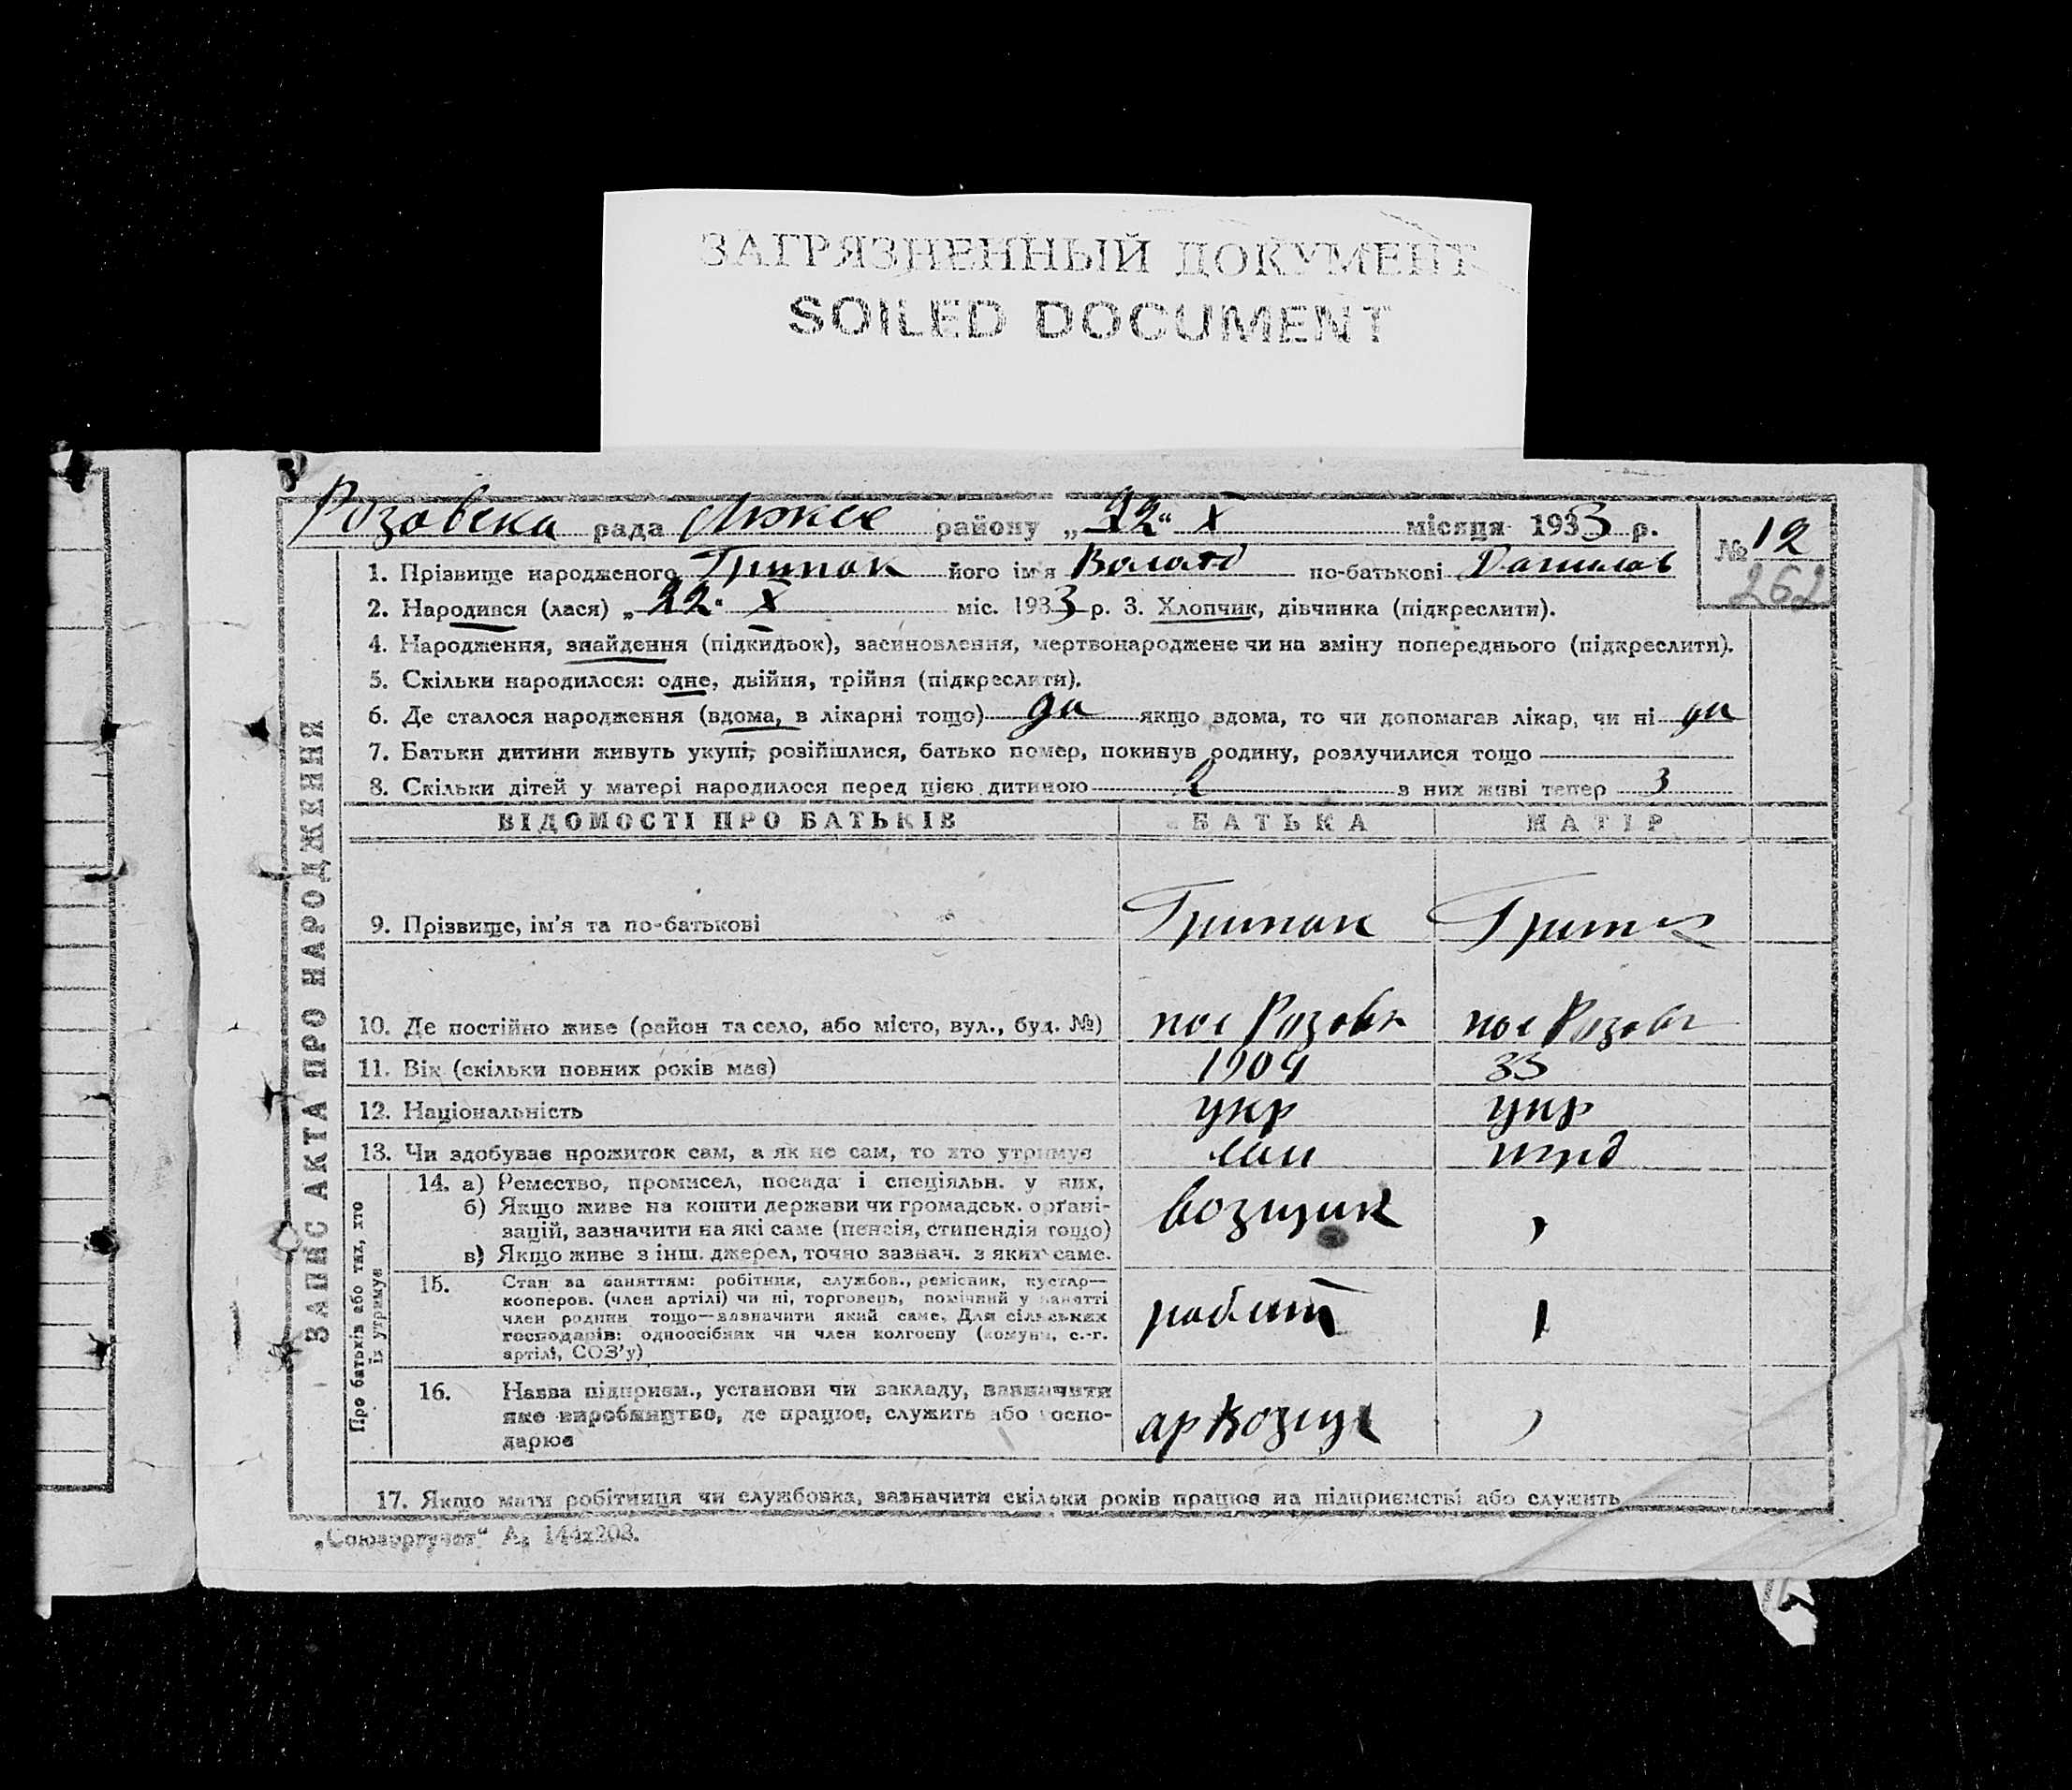 ЗАГРЯЗНЕННЫЙ ДОКУМЕНТ
SOILED DOCUMENT
Розовска рада району „22“ X місяця 1933 р.
№ 12
262
1. Прізвище народженого Грипак його ім'я Волод по-батькові Данилов
2. Народився (лася) „22“ X міс. 1933 р. 3. Хлопчик, дівчинка (підкреслити).
4. Народження, знайдення (підкидьок), засиновлення, мертвонароджене чи на зміну попереднього (підкреслити).
5. Скільки народилося: одне, двійня, трійня (підкреслити).
6. Де сталося народження (вдома, в лікарні тощо) да якщо вдома, то чи допомагав лікар, чи ні да
7. Батьки дитини живуть укупі, розійшлися, батько помер, покинув родину, розлучилися тощо
8. Скільки дітей у матері народилося перед цією дитиною 2 з них живі тепер 3
ВІДОМОСТІ ПРО БАТЬКІВ БАТЬКА МАТІР
9. Прізвище, ім'я та по-батькові Грипак
10. Де постійно живе (район та село, або місто, вул., буд. №) пос Розовк пос Розовк
11. Вік (скільки повних років має) 1904 35
12. Національність укр укр
13. Чи здобуває прожиток сам, а як не сам, то хто утримує сам
14. а) Ремество, промисел, посада і спеціяльн. у них.
б) Якщо живе на кошти держави чи громадськ. орґані-
зацій, зазначити на які саме (пенсія, стипендія тощо)
в) Якщо живе з інш. джерел, точно зазнач. з яких саме.
возщик
15. Стан за заняттям: робітник, службов., ремісник, кустар—
кооперов. (член артілі) чи ні, торговець, помічний у занятті
член родини тощо—зазначити який саме. Для сільських
господарів: одноосібник чи член колгоспу (комуни, с.-г.
артілі, СОЗ'у)
робит
16. Назва підприєм., установи чи закладу, зазначити
яке виробництво, де працює, служить або госпо-
дарює
17. Якщо мати робітниця чи службовка, зазначити скільки років працює на підприємстві або служить
ЗАПИС АКТА ПРО НАРОДЖЕННЯ
Про батьків або тих, хто
їх утримує
„Союзоргучет“ А5 144х203.